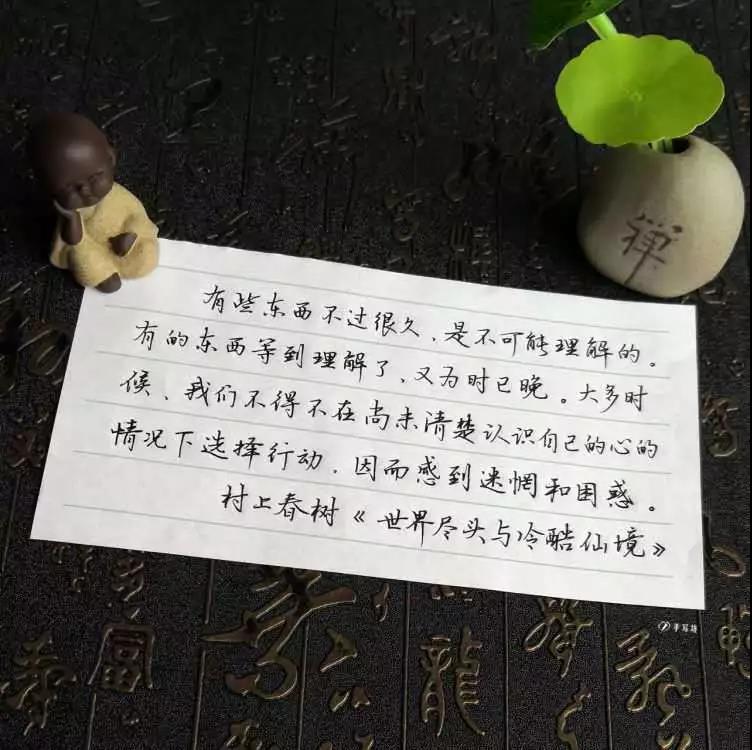 有些东西不过很久、是不可能理解的。
有的东西等到理解了、又为时已晚。大多时
候、我们不得不在尚未清楚认识自己的心的
情况下选择行动、因而感到迷惘和困惑。
村上春树《世界尽头与冷酷仙境》
禅
富
龍